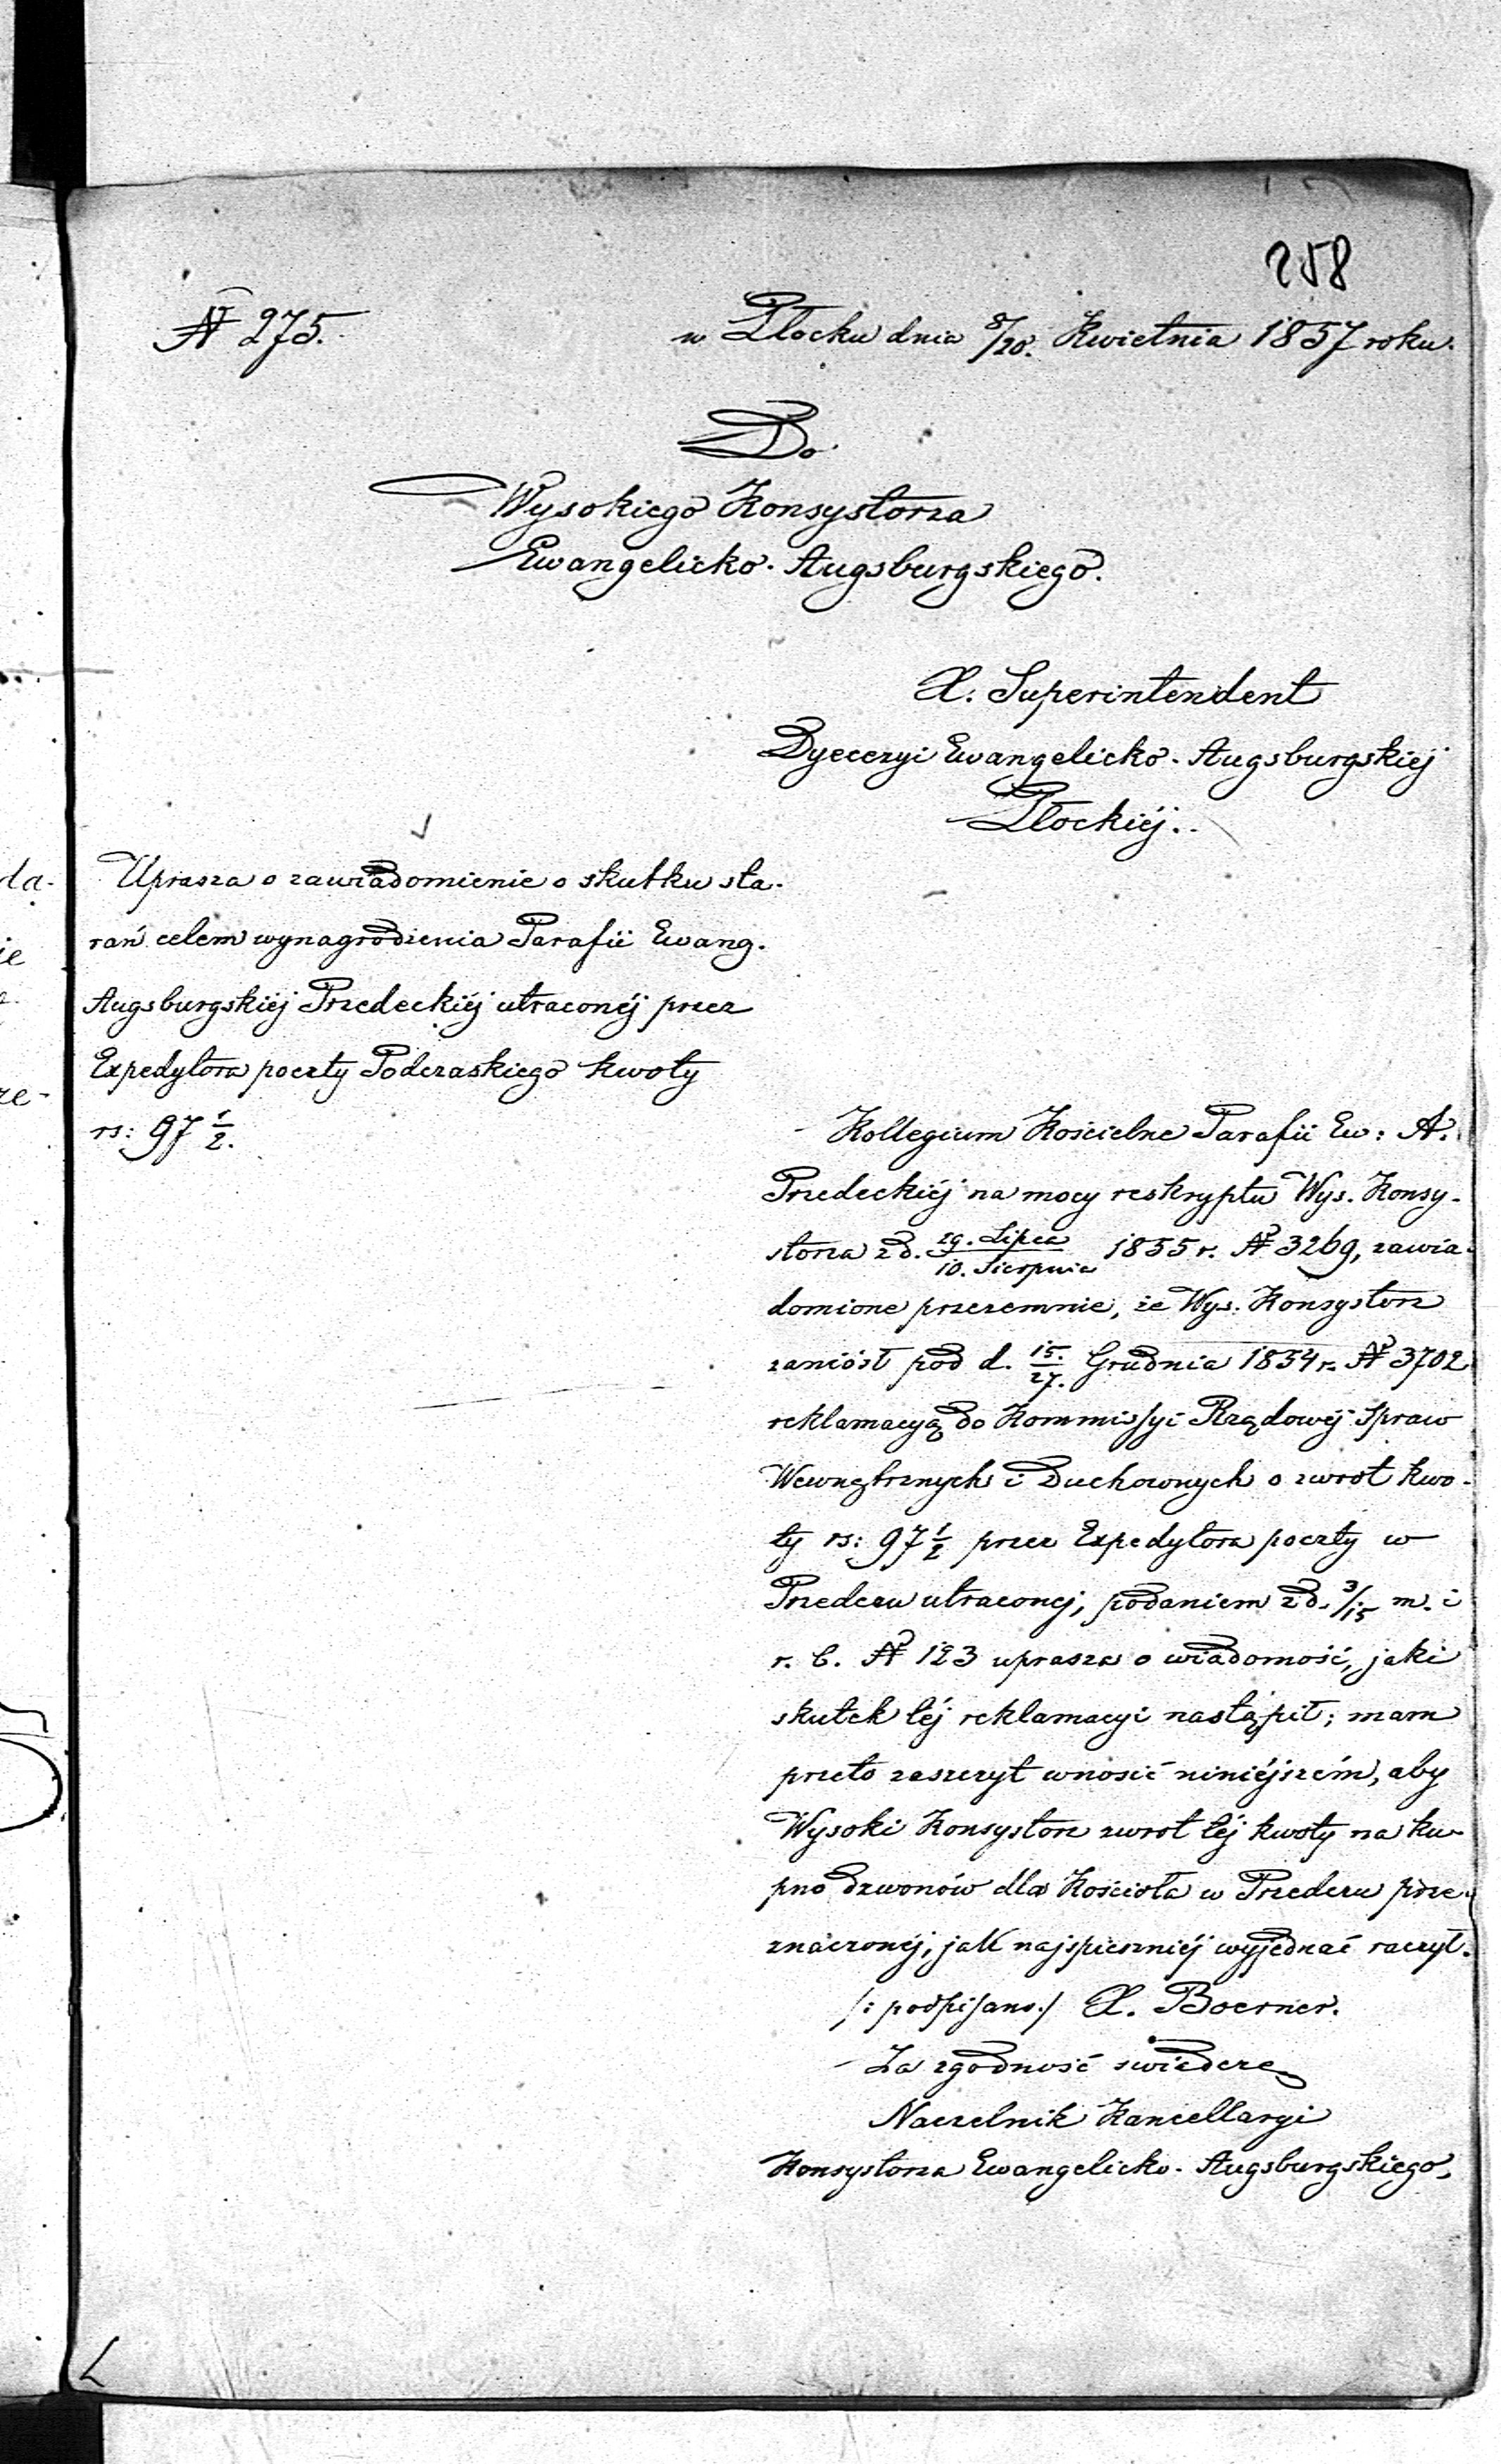 258
№ 275.
w Płocku dnia 8/20. Kwietnia 1857 roku.
Do
Wysokiego Konsystorza
Ewangelicko-Augsburgskiego.
X. Superintendent
Dyecezyi Ewangelicko-Augsburgskiéj
Płockiéj.
Uprasza o zawiadomienie o skutku sta-
rań celem wynagrodzenia Parafii Ewang.
Augsburgskiéj Przedeckiéj utraconéj przez
Expedytora poczty Podczaskiego kwoty
rs: 97 1/2.
Kollegium Kościelne Parafii Ew: A.
Przedeckiéj na mocy reskryptu Wys. Konsy-
storza z d. 29. Lipca / 10. Sierpnia 1855 r. № 3269, zawia-
domione przezemnie, że Wys. Konsystorz
zaniósł pod d. 15./27. Grudnia 1854 r. № 3702
reklamacyą do Kommissyi Rządowéj Spraw
Wewnętrznych i Duchownych o zwrot kwo-
ty rs: 97 1/2 przez Expedytora poczty w
Przedczu utraconej, podaniem z d. 3/15 m. i
r. b. № 123 uprasza o wiadomość, jaki
skutek téj reklamacyi nastąpił; mam
przeto zaszczyt wnosić niniéjszém, aby
Wysoki Konsystorz zwrot téj kwoty na ku-
pno dzwonów dla Kościoła w Przedczu prze-
znaczonéj, jak najspieszniéj wyjednać raczył.
/: podpisano :/ X. Boerner.
Za zgodność świadczę
Naczelnik Kancellaryi
Konsystorza Ewangelicko-Augsburgskiego,